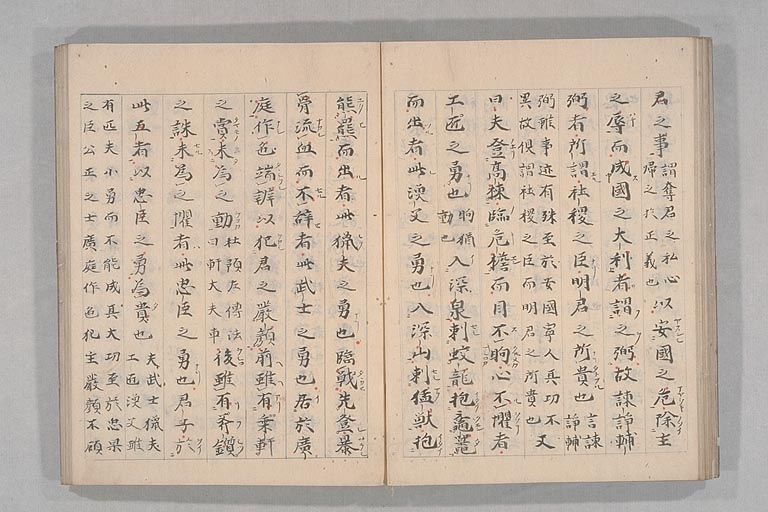 君之事謂奪君之私心歸之於正義也以安國之危除主
之辱而成國之大利者謂之弼故諫諍輔
弼者所謂社稷之臣明君之所貴也言諫諍輔
弼雖事迹有殊至於安國寧人其功不
異故倶謂社稷之臣而明君之所貴也又
曰夫登高棟臨危檐而目不眴心不懼者
工匠之勇也眴猶動也入深泉刺蛟龍抱黿鼉
而出者此漁父之勇也入深山刺猛獣抱
熊羆而出者此獵夫之勇也臨戰先登暴
骨流血而不辭者此武士之勇也居於廣
庭作色端辯以犯君之嚴顔前雖有乗軒
之賞未為之動杜預左傳法曰軒大夫車後雖有斧鑕
之誅未為之懼者此忠臣之勇也君子於
此五者以忠臣之勇為貴也夫武士獵夫工匠漁父雖
有匹夫小勇而不能成其大功至於忠果
之臣公正之士廣庭作色犯主嚴顔不顧